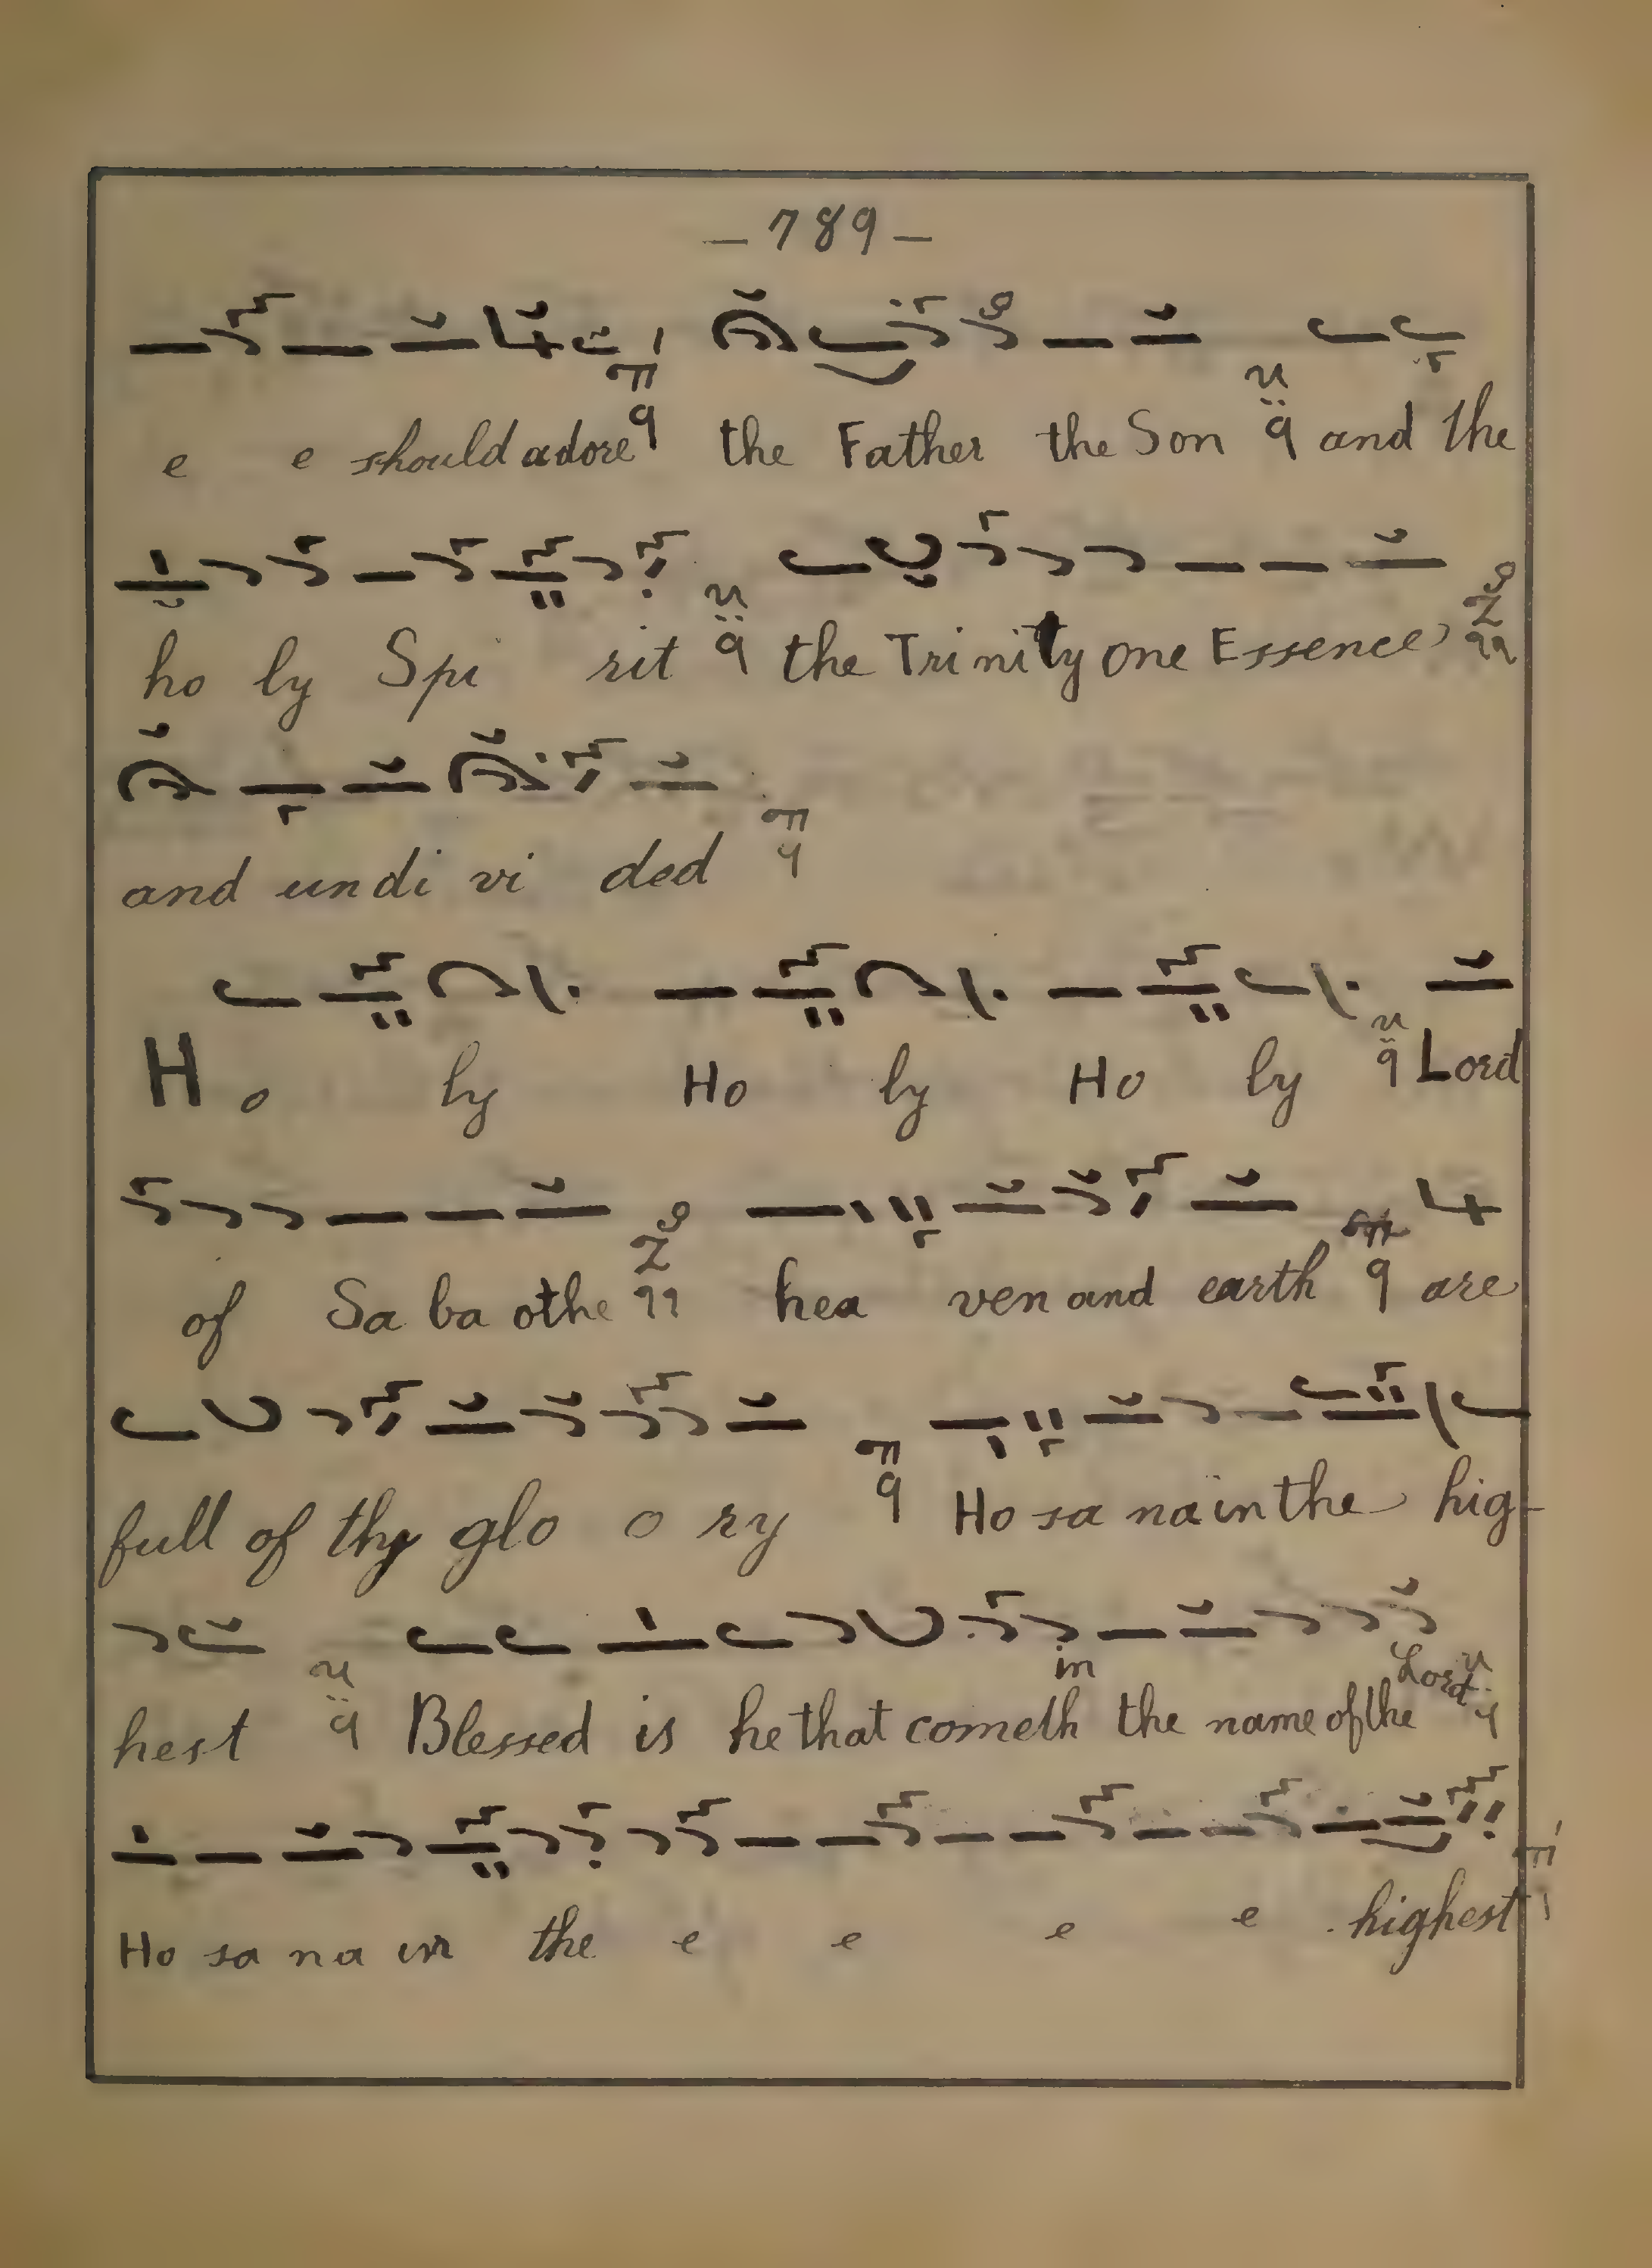 — 789 —
e e should adore the Father the Son and the
ho ly Spi rit the Trinity one Essence
and un di vi ded
Ho ly Ho ly Ho ly Lord
of Sa ba othe hea ven and earth are
full of thy glo o ry Ho sa na in the hig-
in Lord
hest Blessed is he that cometh the name of the
Ho sa na in the e e e e highest